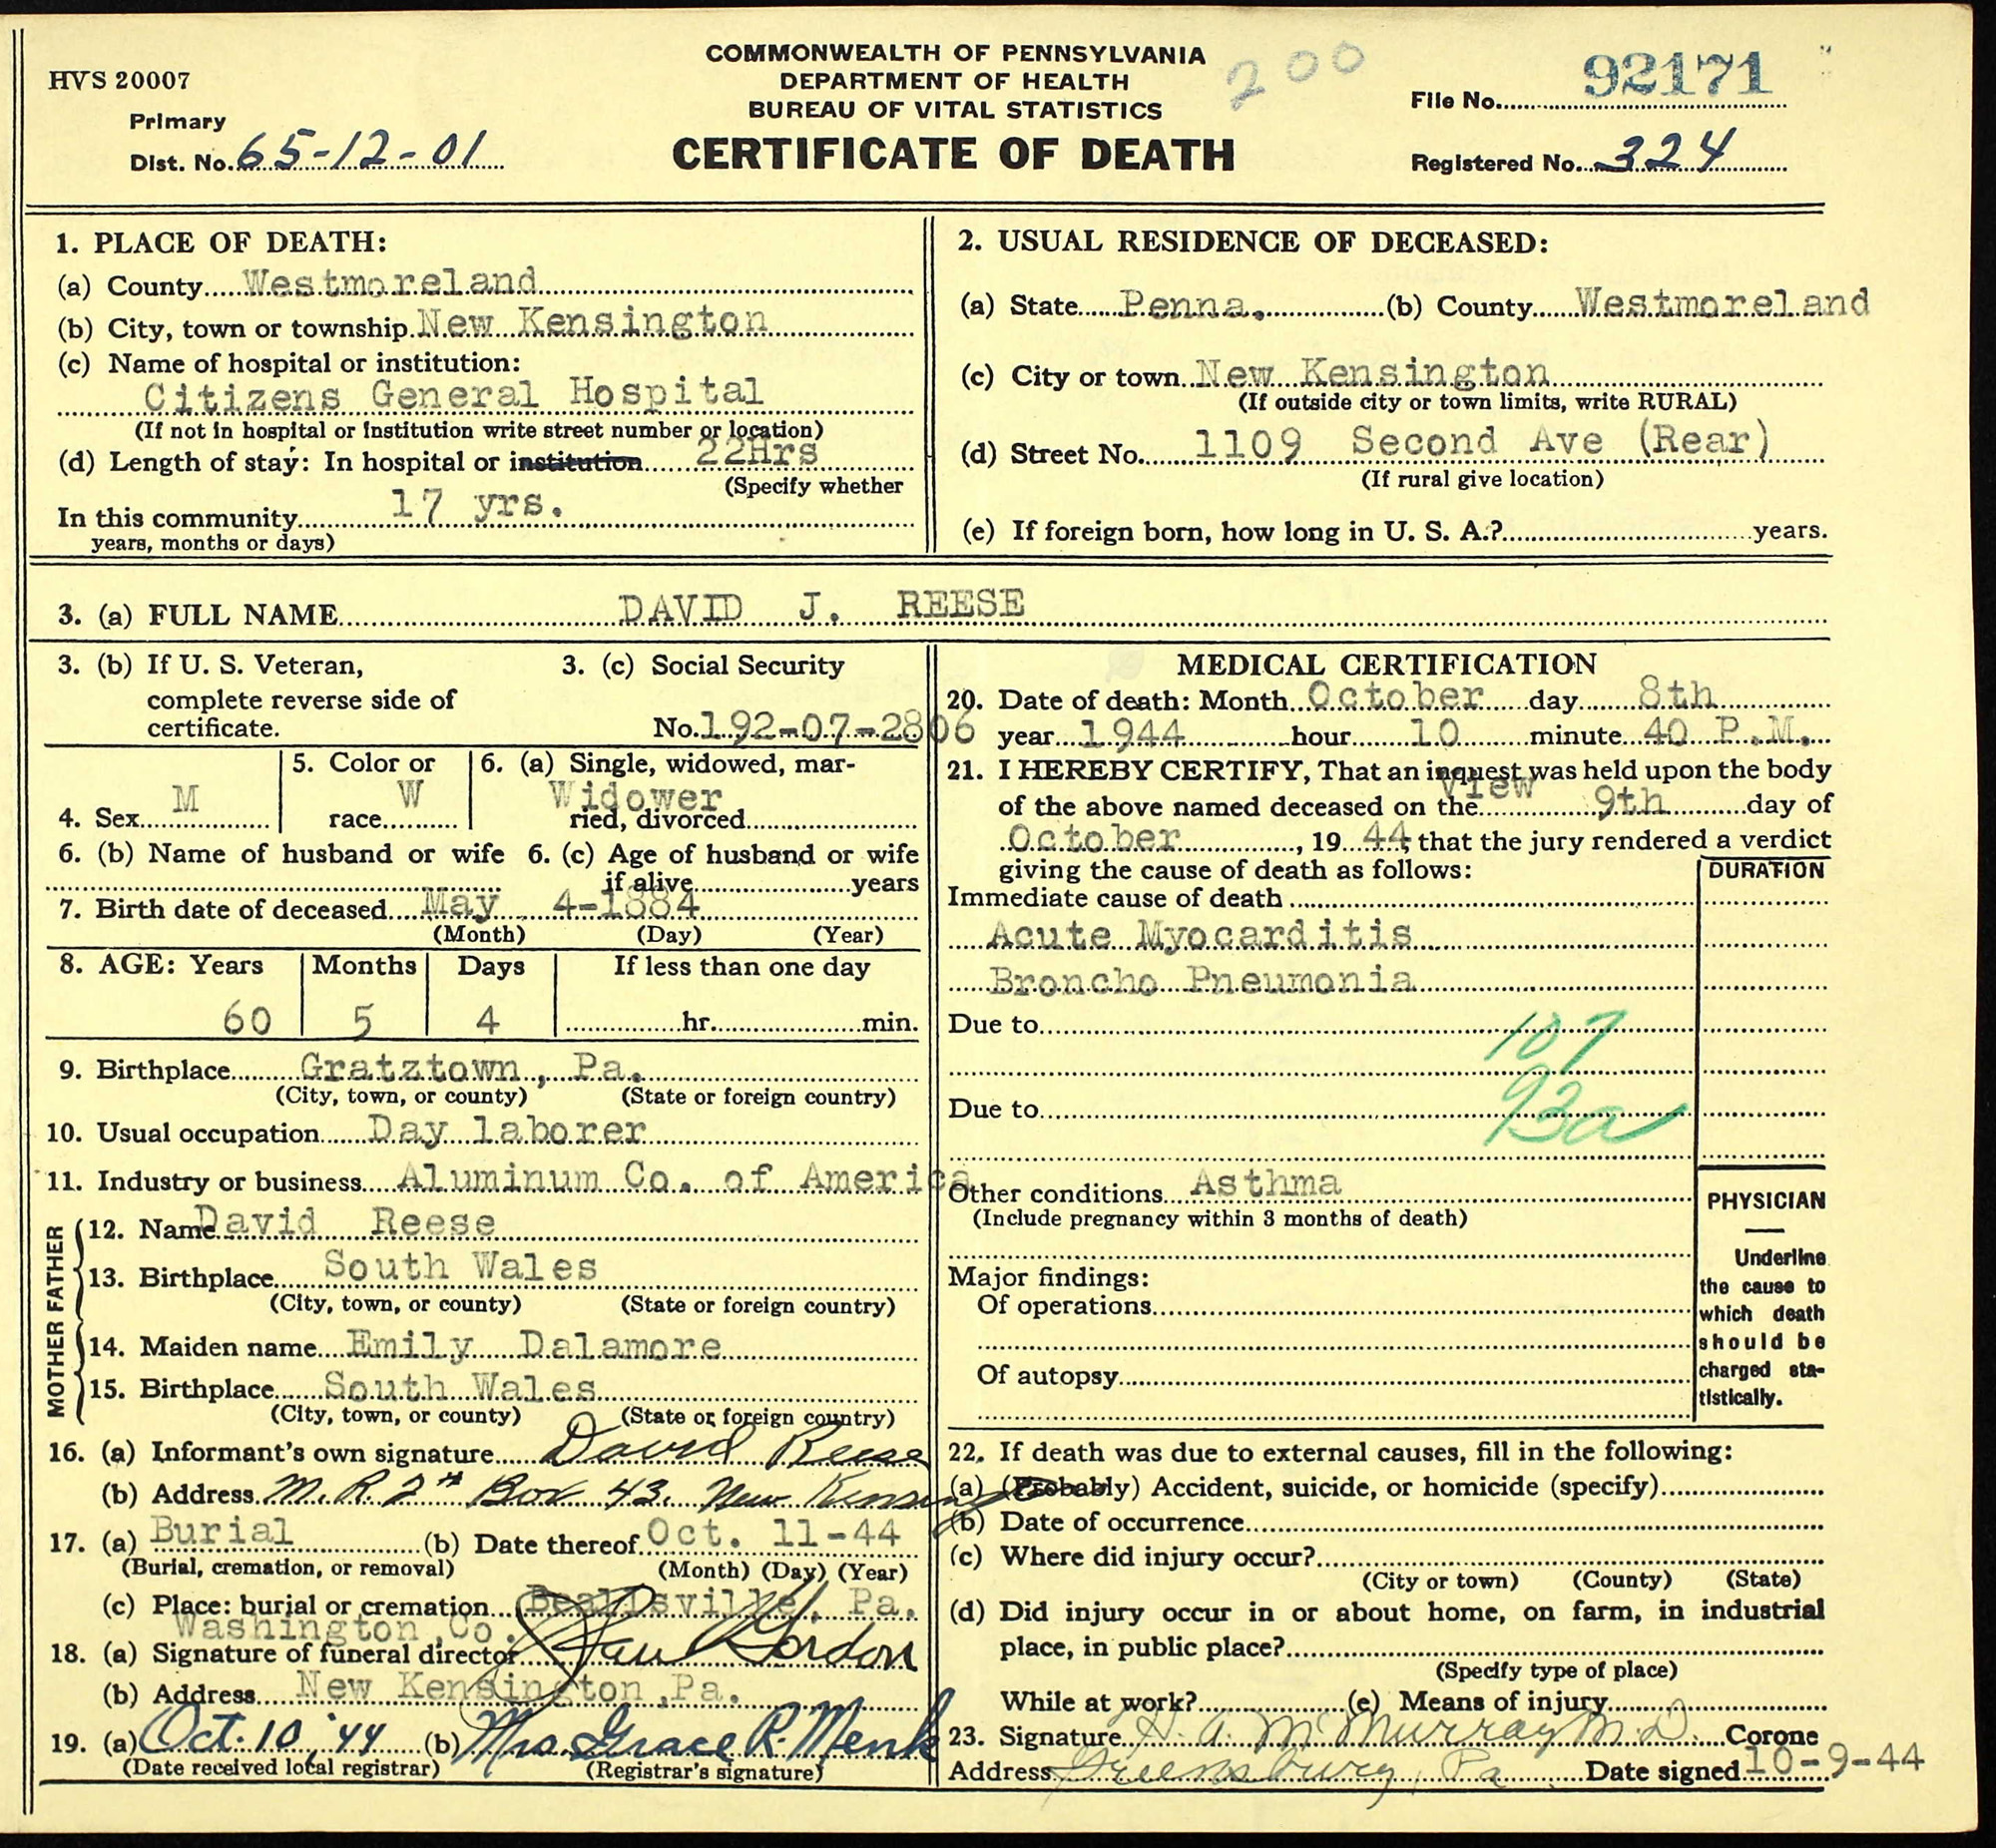 HVS 20007
COMMONWEALTH OF PENNSYLVANIA
DEPARTMENT OF HEALTH
BUREAU OF VITAL STATISTICS
CERTIFICATE OF DEATH
200
Primary
Dist. No. 65-12-01
File No. 92171
Registered No. 324
1. PLACE OF DEATH:
(a) County Westmoreland
(b) City, town or township New Kensington
(c) Name of hospital or institution:
Citizens General Hospital
(If not in hospital or institution write street number or location)
(d) Length of stay: In hospital or institution 22Hrs
(Specify whether
In this community 17 yrs.
years, months or days)
2. USUAL RESIDENCE OF DECEASED:
(a) State Penna. (b) County Westmoreland
(c) City or town New Kensington
(If outside city or town limits, write RURAL)
(d) Street No. 1109 Second Ave (Rear)
(If rural give location)
(e) If foreign born, how long in U. S. A.? years.
3. (a) FULL NAME DAVID J. REESE
3. (b) If U. S. Veteran,
complete reverse side of
certificate.
3. (c) Social Security
No. 192-07-2806
4. Sex M
5. Color or
race W
6. (a) Single, widowed, mar-
ried, divorced Widower
6. (b) Name of husband or wife
6. (c) Age of husband or wife
if alive years
7. Birth date of deceased May 4-1884
(Month) (Day) (Year)
8. AGE: Years Months Days If less than one day
60 5 4 hr. min.
9. Birthplace Gratztown, Pa.
(City, town, or county) (State or foreign country)
10. Usual occupation Day laborer
11. Industry or business Aluminum Co. of America
FATHER
12. Name David Reese
13. Birthplace South Wales
(City, town, or county) (State or foreign country)
MOTHER
14. Maiden name Emily Dalamore
15. Birthplace South Wales
(City, town, or county) (State or foreign country)
16. (a) Informant's own signature David Reese
(b) Address M. R. 2# Box 43. New Kensing
17. (a) Burial (b) Date thereof Oct. 11-44
(Burial, cremation, or removal) (Month) (Day) (Year)
(c) Place: burial or cremation Beallsville, Pa.
Washington Co.
18. (a) Signature of funeral director Gordon
(b) Address New Kensington, Pa.
19. (a) Oct. 10, '44 (b) Mrs Grace R. Menk
(Date received local registrar) (Registrar's signature)
MEDICAL CERTIFICATION
20. Date of death: Month October day 8th
year 1944 hour 10 minute 40 P.M.
21. I HEREBY CERTIFY, That an inquest was held upon the body
View
of the above named deceased on the 9th day of
October, 19 44, that the jury rendered a verdict
giving the cause of death as follows:
DURATION
Immediate cause of death
Acute Myocarditis
Broncho Pneumonia
Due to
107
Due to
93a
Other conditions Asthma
(Include pregnancy within 3 months of death)
Major findings:
Of operations
Of autopsy
PHYSICIAN
Underline
the cause to
which death
should be
charged sta-
tistically.
22. If death was due to external causes, fill in the following:
(a) (Probably) Accident, suicide, or homicide (specify)
(b) Date of occurrence
(c) Where did injury occur?
(City or town) (County) (State)
(d) Did injury occur in or about home, on farm, in industrial
place, in public place?
(Specify type of place)
While at work? (e) Means of injury
23. Signature H. A. McMurray M.D. Corone
Address Greensburg, Pa Date signed 10-9-44